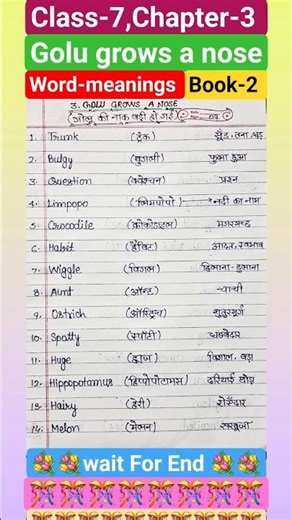 Class-7,Chapter-3
Golu grows a nose
Word-meanings Book-2
3. GOLU GROWS A NOSE
(गोलू की नाक बड़ी हो गई)
1. Trunk (ट्रंक) सूँड, तना, धड़
2. Bulgy (बुल्गी) फुला हुआ
3. Question (क्वेश्चन) प्रश्न
4. Limpopo (लिमपोपो) नदी का नाम
5. Crocodile (क्रोकोडाइल) मगरमच्छ
6. Habit (हैबिट) आदत, स्वभाव
7. Wiggle (विगल) हिलाना-डुलाना
8. Aunt (ऑन्ट) चाची
9. Ostrich (ऑस्ट्रिच) शुतुरमुर्ग
10. Spotty (स्पॉटी) धब्बेदार
11. Huge (ह्यूज) विशाल, बड़ा
12. Hippopotamus (हिप्पोपोटामस) दरियाई घोड़ा
13. Hairy (हेरी) रोएँदार
14. Melon (मेलन) खरबूजा
wait For End